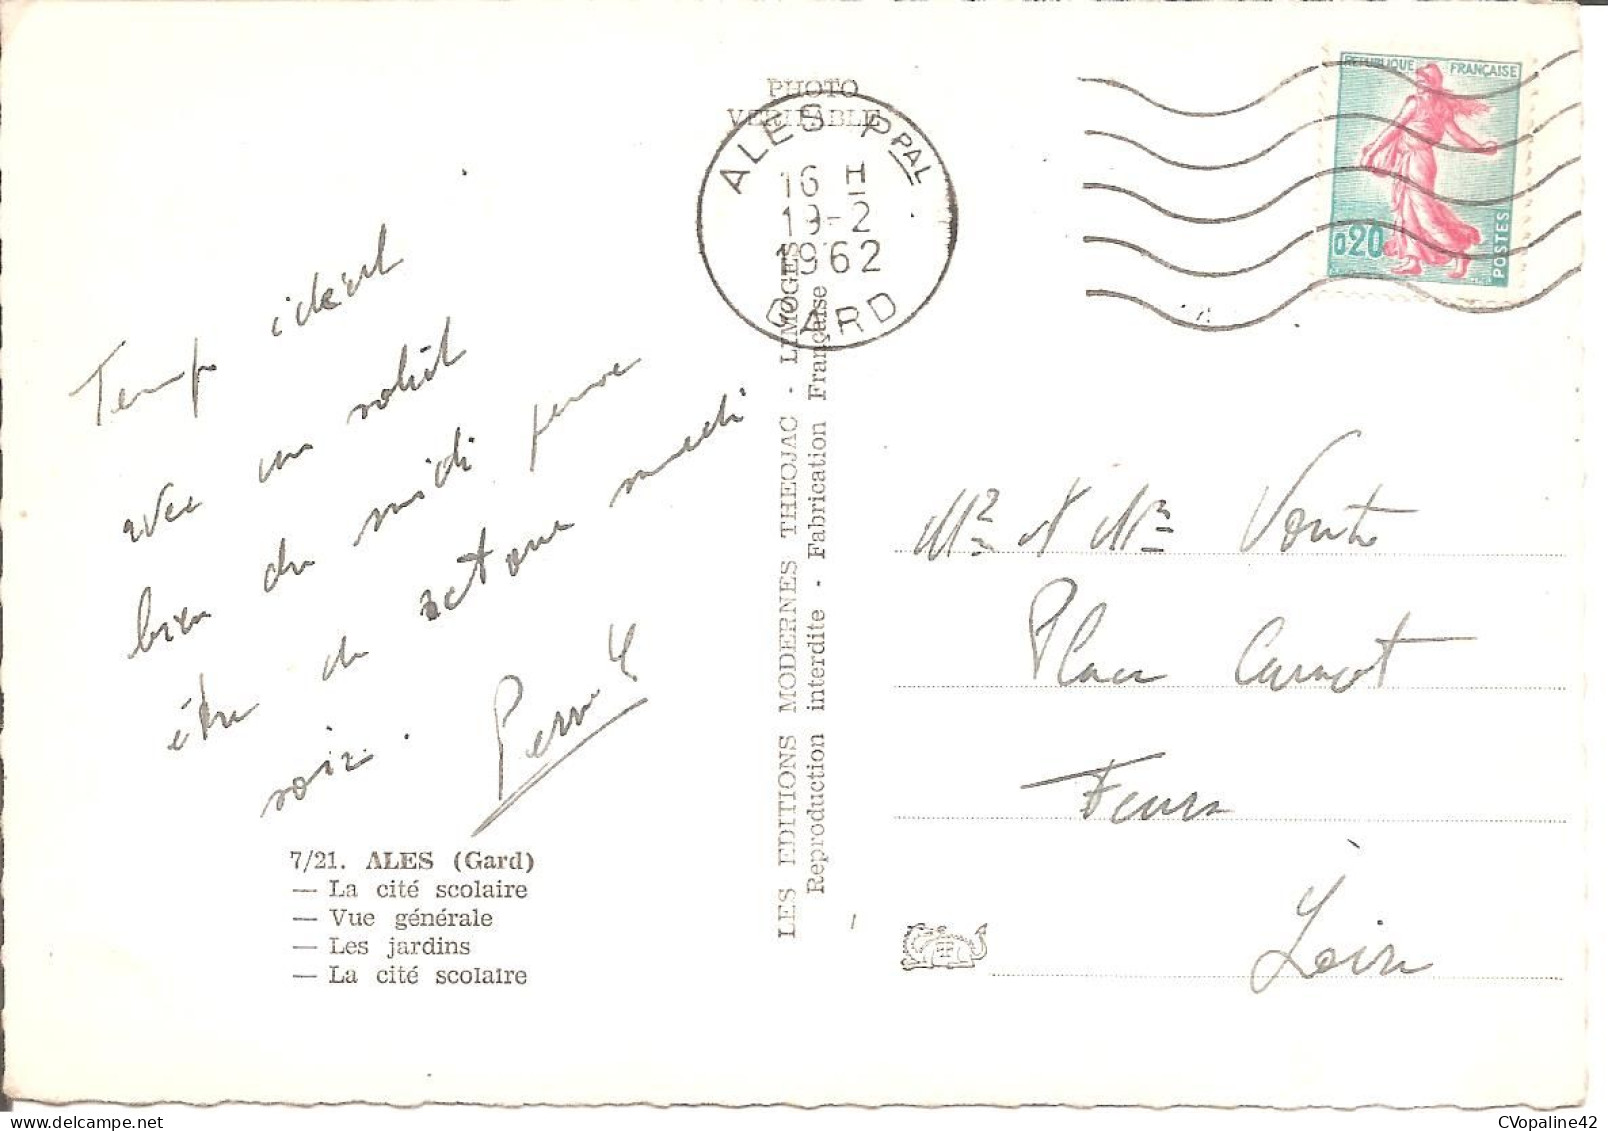 PHOTO
VERITABLE
ALES PPAL
16 H
19-2
1962
GARD
REPUBLIQUE FRANÇAISE
0,20
POSTES
Temps idéal
avec un soleil
bien du midi pense
être de retour mardi
soir.
7/21. ALES (Gard)
— La cité scolaire
— Vue générale
— Les jardins
— La cité scolaire
LES EDITIONS MODERNES THEOJAC - LIMOGES
Reproduction interdite - Fabrication Française
Mr & Me
Place Carnot
Feurs
Loire
CVopaline42